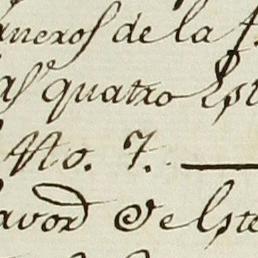 aneros de la
as quatro Est
No. 7. —
avor de Este